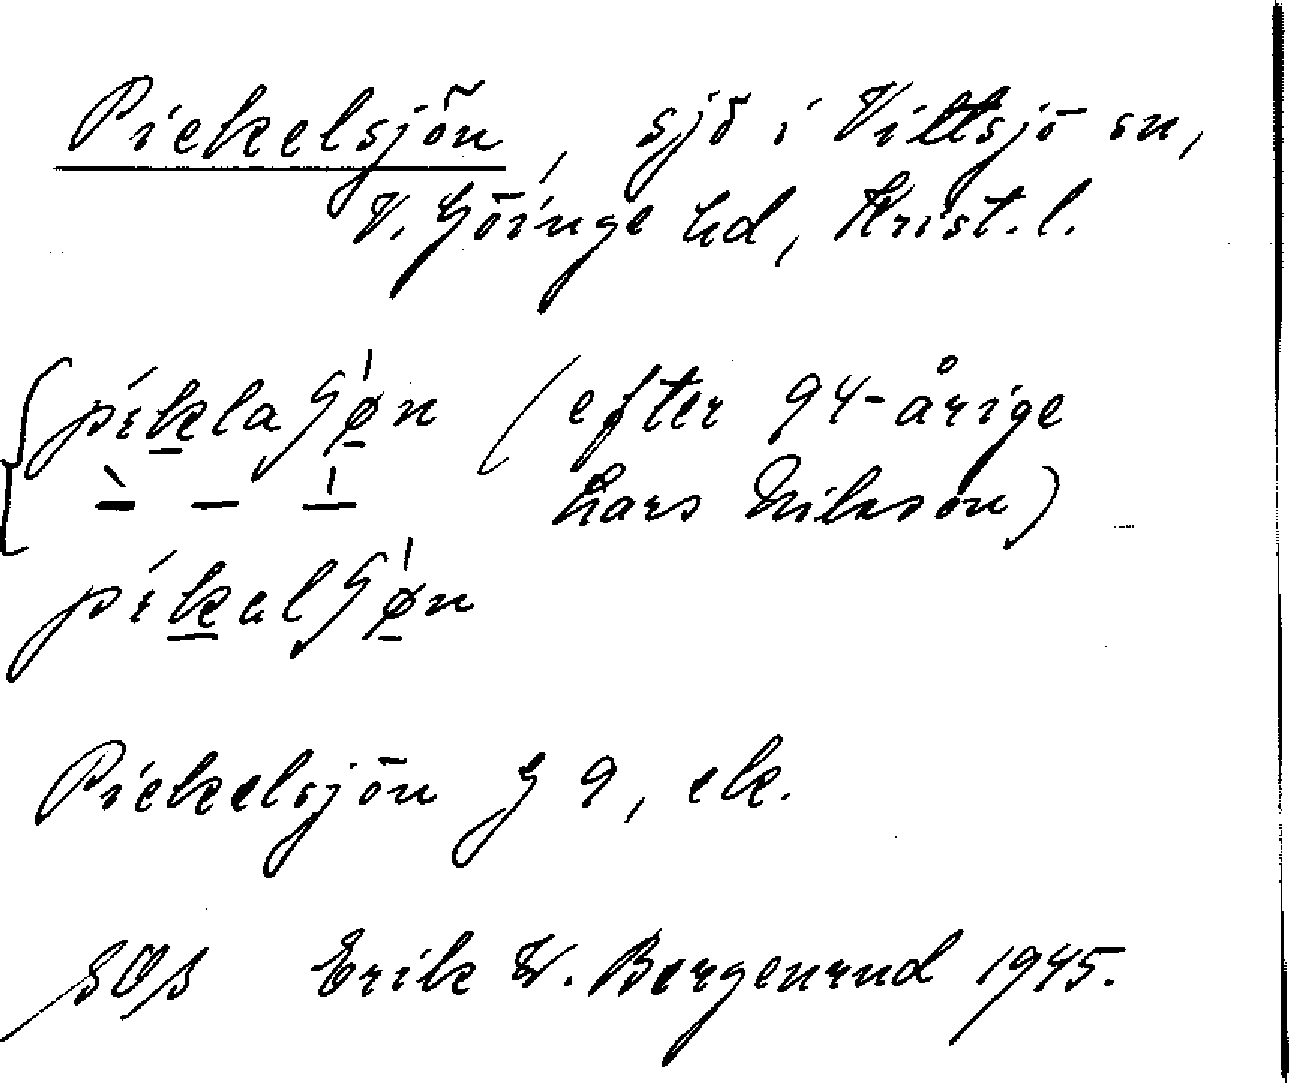 Pickelsjön, sjö i Vittsjö sn,
V. Göinge hd, Krist. l.
píklaʃø̍n (efter 94-årige
Lars Nilsson)
píkalʃø̍n
Pickelsjön G 9, ek.
SOS Erik W. Bergenrud 1945.